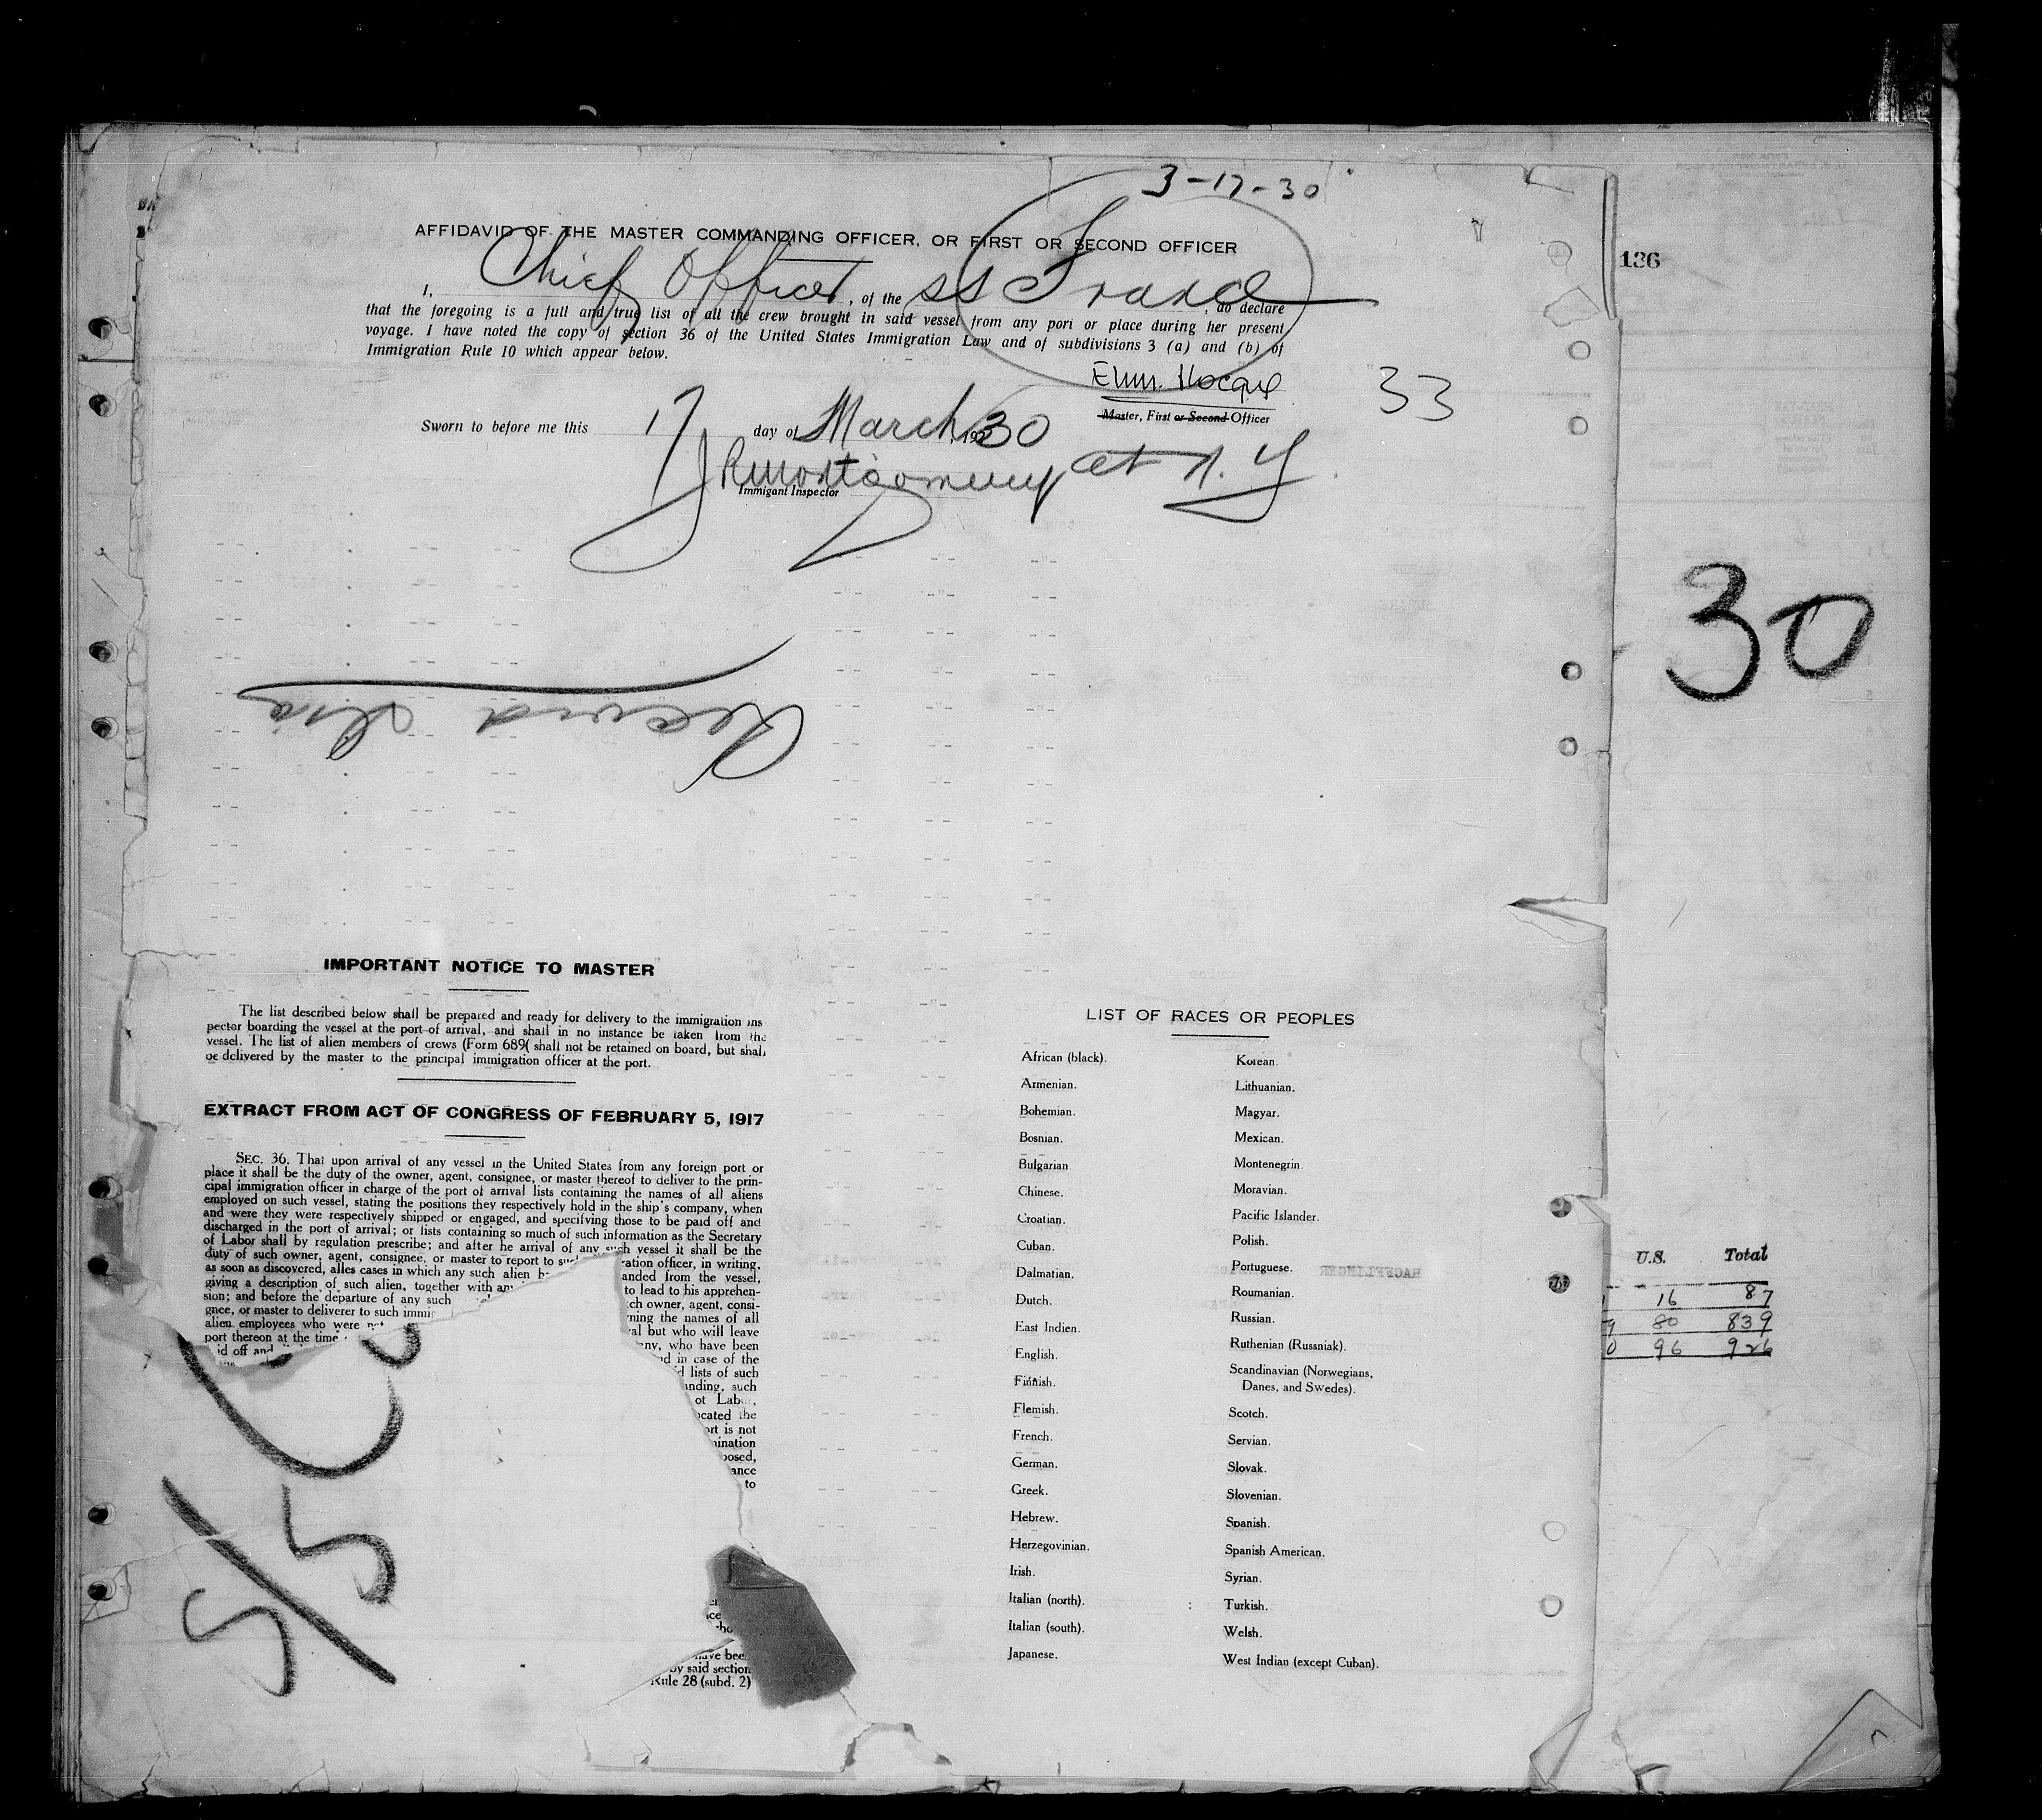 3-17-30
AFFIDAVID OF THE MASTER COMMANDING OFFICER, OR FIRST OR SECOND OFFICER
136
I, Chief Officer, of the SS France, do declare
that the foregoing is a full and true list of all the crew brought in said vessel from any port or place during her present
voyage. I have noted the copy of section 36 of the United States Immigration Law and of subdivisions 3 (a) and (b) of
Immigration Rule 10 which appear below.
33
Master, First or Second Officer
Sworn to before me this 17 day of March 1930
Montgomery at N. Y
Immigant Inspector
30
IMPORTANT NOTICE TO MASTER
The list described below shall be prepared and ready for delivery to the immigration ins
pector boarding the vessel at the port of arrival, and shall in no instance be taken from the
vessel. The list of alien members of crews (Form 689( shall not be retained on board, but shall
oe delivered by the master to the principal immigration officer at the port.
EXTRACT FROM ACT OF CONGRESS OF FEBRUARY 5, 1917
SEC. 36. That upon arrival of any vessel in the United States from any foreign port or
place it shall be the duty of the owner, agent, consignee, or master thereof to deliver to the prin-
cipal immigration officer in charge of the port of arrival lists containing the names of all aliens
employed on such vessel, stating the positions they respectively hold in the ship's company, when
and were they were respectively shipped or engaged, and specifying those to be paid off and
discharged in the port of arrival; or lists containing so much of such information as the Secretary
of Labor shall by regulation prescribe; and after he arrival of any such vessel it shall be the
duty of such owner, agent, consignee, or master to report to such ration officer, in writing,
as soon as discovered, alles cases in which any such alien h anded from the vessel,
giving a description of such alien, together with any to lead to his apprehen-
sion; and before the departure of any such ch owner, agent, consi-
gnee, or master to deliverer to such immig ning the names of all
alien employees who were not al but who will leave
port thereon at the time ny, who have been
id off and d in case of the
d lists of such
anding, such
ot Labor,
ocated the
ort is not
mination
posed,
ance
to
have been
by said section
Rule 28 (subd. 2)
LIST OF RACES OR PEOPLES
African (black).
Armenian.
Bohemian.
Bosnian.
Bulgarian
Chinese.
Croatian.
Cuban.
Dalmatian.
Dutch.
East Indien.
English.
Finnish.
Flemish.
French.
German.
Greek.
Hebrew.
Herzegovinian.
Irish.
Italian (north).
Italian (south).
Japanese.
Korean.
Lithuanian.
Magyar.
Mexican.
Montenegrin.
Moravian.
Pacific Islander.
Polish.
Portuguese.
Roumanian.
Russian.
Ruthenian (Russniak).
Scandinavian (Norwegians,
Danes, and Swedes).
Scotch.
Servian.
Slovak.
Slovenian.
Spanish.
Spanish American.
Syrian.
Turkish.
Welsh.
West Indian (except Cuban).
U.S. Total
16 87
9 80 839
0 96 926